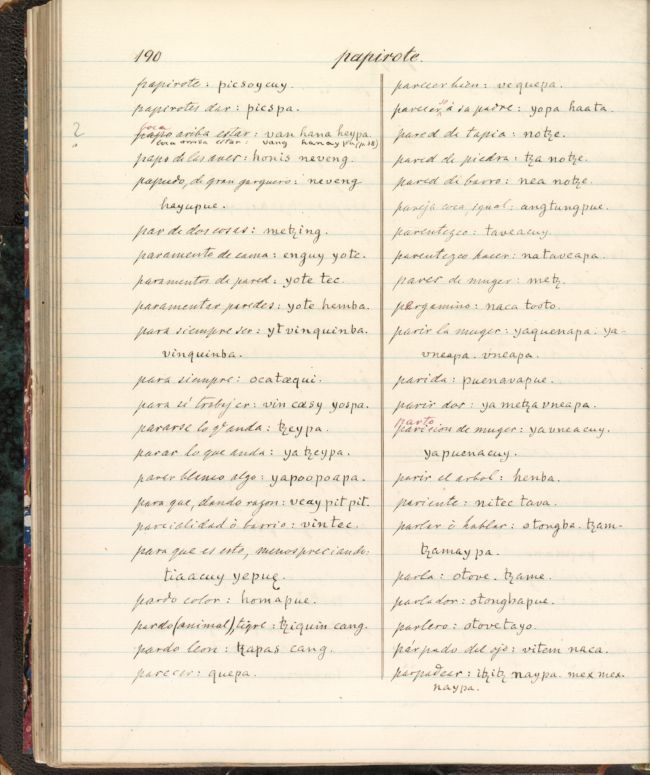 190 papirote.
papirote: picsoycuy.
papirotes dar: picspa.
boca
papo ariba estar: van hana keypa.
boca arriba estar: vang hanay pa (p. 38)
?
papo de las aues: honis neveng.
papudo, de gran garguero: neveng
heyupue.
par de dos cosas: metzing.
paramento de cama: enguy yote.
paramentos de pared: yote tec.
paramentar paredes: yote hemba.
para siempre ser: yt vinquinba.
vinquinba.
para siempre: ocatæqui.
para sí trabajer: vin cæsy yospa.
pararse lo qe anda: tzeypa.
parar lo que anda: ya tzeypa.
parar blanco algo: yapoopoapa.
para que, dando razon: vcay pit pit.
parcialidad ò barrio: vin tec.
para que es esto, menospreciando:
tiaacuy yepuę.
pardo color: homapue.
pardo (animal), tigre: tziquin cang.
pardo leon: tzapas cang.
parecer: quepa.
parecer bien: vequepa.
parecer se à su padre: yopa haata.
pared de tapia: notze.
pared de piedra: tza notze.
pared de barro: nea notze.
pareja cosa, igual: angtungpue.
parentezco: taveacuy.
parentezco hacer: nataveapa.
pares de muger: metz.
pergamino: naca tooto.
parir la muger: yaquenapa. ya-
vneapa. vneapa.
parida: puenavapue.
parir dos: ya metza vneapa.
parto
paricion de muger: yavneacuy.
yapuenacuy.
parir el arbol: henba.
pariente: nitec tava.
parlar ò hablar: otongba. tzam-
tzamaypa.
parla: otove. tzame.
parlador: otongbapue.
parlero: otovetayo.
parpado del ojo: vitem naca.
parpadear: itzitz naypa. mex mex
naypa.